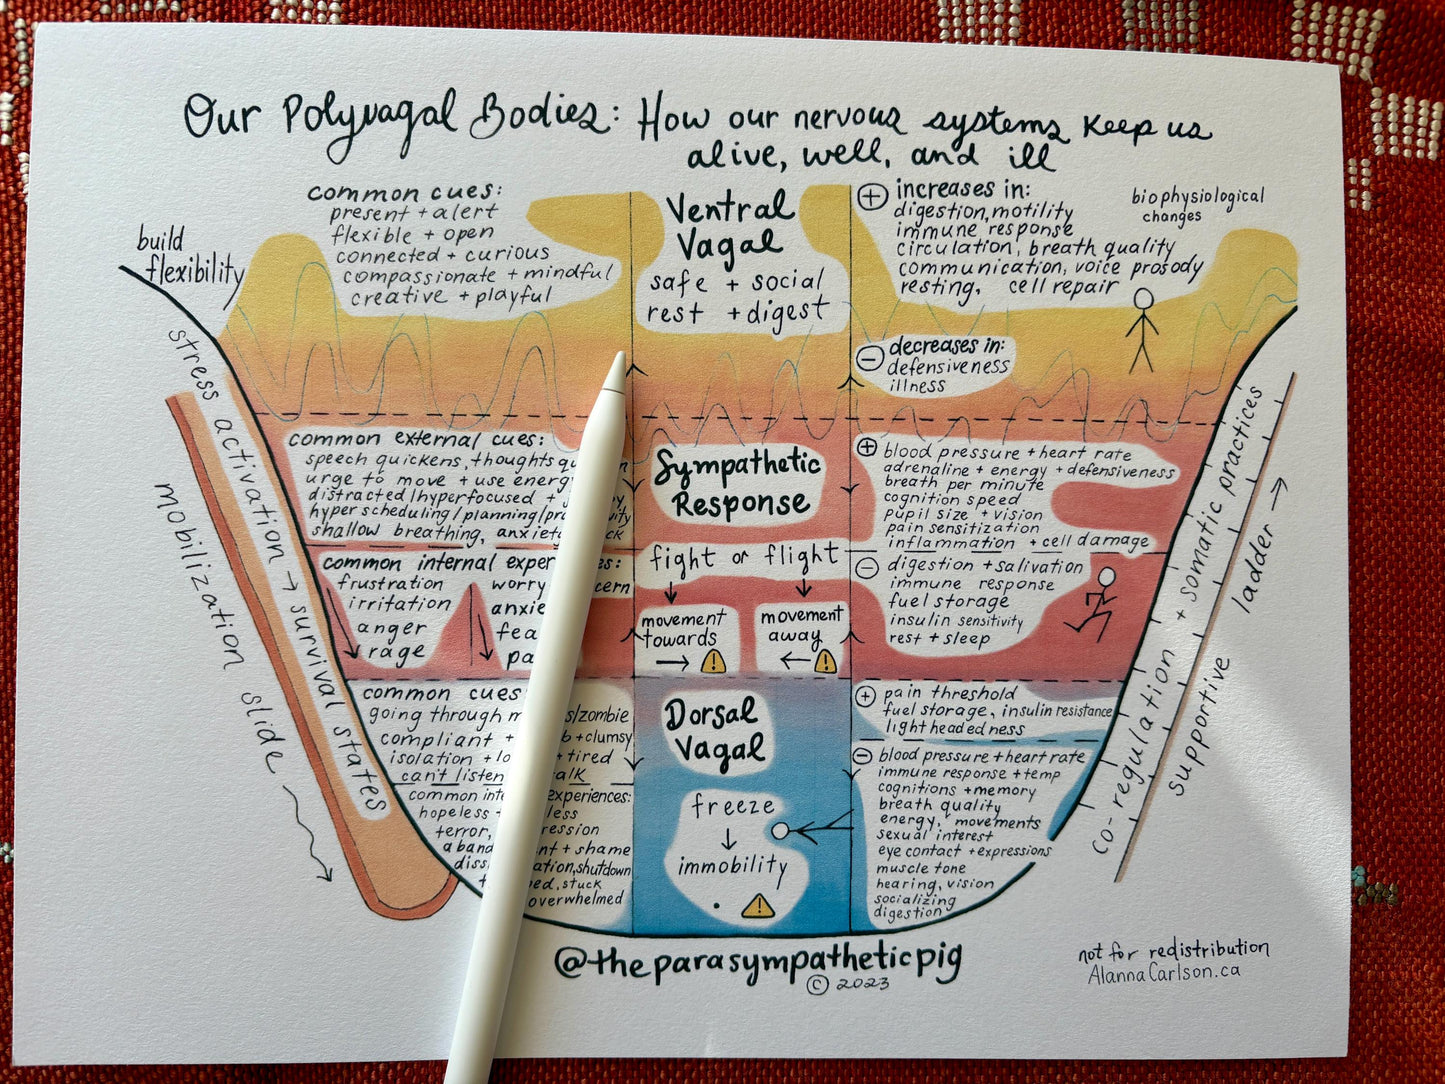 Our Polyvagal Bodies: How our nervous systems keep us
alive, well, and ill
build
flexibility
stress activation → survival states
mobilization slide
common cues:
present + alert
flexible + open
connected + curious
compassionate + mindful
creative + playful
Ventral
Vagal
safe + social
rest + digest
+ increases in:
digestion, motility
immune response
circulation, breath quality
communication, voice prosody
resting, cell repair
biophysiological
changes
- decreases in:
defensiveness
illness
common external cues:
speech quickens, thoughts
urge to move + use
distracted/hyperfocused +
hyper scheduling/planning/
shallow breathing,
common internal
frustration
irritation
anger
rage
worry
Sympathetic
Response
fight or flight
movement
towards
→
movement
away
←
+ blood pressure + heart rate
adrenaline + energy + defensiveness
breath per minute
cognition speed
pupil size + vision
pain sensitization
inflammation + cell damage
- digestion + salivation
immune response
fuel storage
insulin sensitivity
rest + sleep
common cues
going through /zombie
compliant + + clumsy
isolation + + tired
can't listen
common experiences:
hopeless +
terror,
+ shame
shutdown
stuck
overwhelmed
Dorsal
Vagal
freeze
immobility
+ pain threshold
fuel storage, insulin resistance
lightheadedness
- blood pressure + heart rate
immune response + temp
cognitions + memory
breath quality
energy, movements
sexual interest
eye contact + expressions
muscle tone
hearing, vision
socializing
digestion
co-regulation + somatic practices
supportive ladder →
@theparasympatheticpig
© 2023
not for redistribution
AlannaCarlson.ca